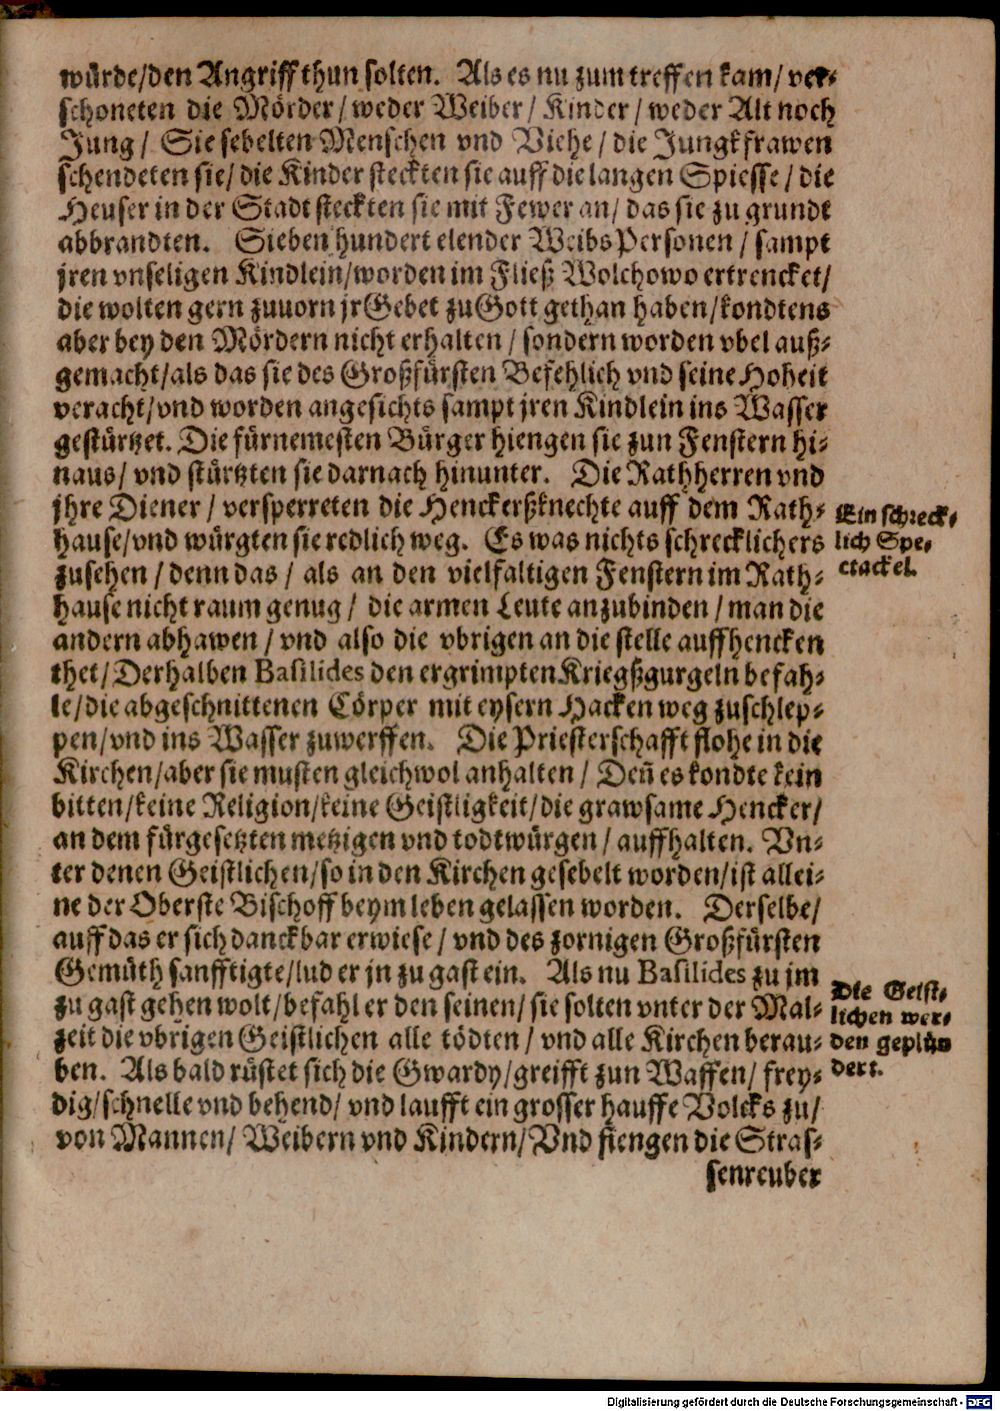 würde/den Angriff thun solten. Als es nu zum treffen kam/ ver-
schoneten die Mörder/ weder Weiber/ Kinder/ weder Alt noch
Jung/ Sie sebelten Menschen vnd Viehe/ die Jungkfrawen
schendeten sie/ die Kinder steckten sie auff die langen Spiesse/ die
Heuser in der Stadt steckten sie mit Fewer an/ das sie zu grundt
abbrandten. Sieben hundert elender WeibsPersonen/ sampt
jren vnseligen Kindlein/worden im Fließ Wolchowo ertrencket/
die wolten gern zuuorn jr Gebet zu Gott gethan haben/kondtens
aber bey den Mördern nicht erhalten/ sondern worden vbel auß-
gemacht/als das sie des Großfürsten Befehlich vnd seine Hoheit
veracht/vnd worden angesichts sampt jren Kindlein ins Wasser
gestürtzet. Die fürnemesten Bürger hiengen sie zun Fenstern hi-
naus/ vnd stürtzten sie darnach hinunter. Die Rathherren vnd
jhre Diener/ versperreten die Henckerßknechte auff dem Rath-
hause/vnd würgten sie redlich weg. Es was nichts schrecklichers
zusehen/ denn das/ als an den vielfaltigen Fenstern im Rath-
hause nicht raum genug/ die armen Leute anzubinden/ man die
andern abhawen/ vnd also die vbrigen an die stelle auffhencken
thet/ Derhalben Basilides den ergrimpten Kriegßgurgeln befah-
le/die abgeschnittenen Cörper mit eysern Hacken weg zuschlep-
pen/vnd ins Wasser zuwerffen. Die Priesterschafft flohe in die
Kirchen/aber sie musten gleichwol anhalten/ Deñ es kondte kein
bitten/keine Religion/keine Geistligkeit/die grawsame Hencker/
an dem fürgesetzten metzigen vnd todtwürgen/ auffhalten. Vn-
ter denen Geistlichen/so in den Kirchen gesebelt worden/ist allei-
ne der Oberste Bischoff beym leben gelassen worden. Derselbe/
auff das er sich danckbar erwiese/ vnd des zornigen Großfürsten
Gemüth sanfftigte/lud er jn zu gast ein. Als nu Basilides zu jm
zu gast gehen wolt/befahl er den seinen/ sie solten vnter der Mal-
zeit die vbrigen Geistlichen alle tödten/ vnd alle Kirchen berau-
ben. Als bald rüstet sich die Gwardy/greifft zun Waffen/ frey-
dig/schnelle vnd behend/ vnd laufft ein grosser hauffe Volcks zu/
von Mannen/ Weibern vnd Kindern/ Vnd fiengen die Stras-
senreuber
Ein schreck-
lich Spe-
ctackel.
Die Geist-
lichen wer-
den geplün
dert.
Digitalisierung gefördert durch die Deutsche Forschungsgemeinschaft - DFG